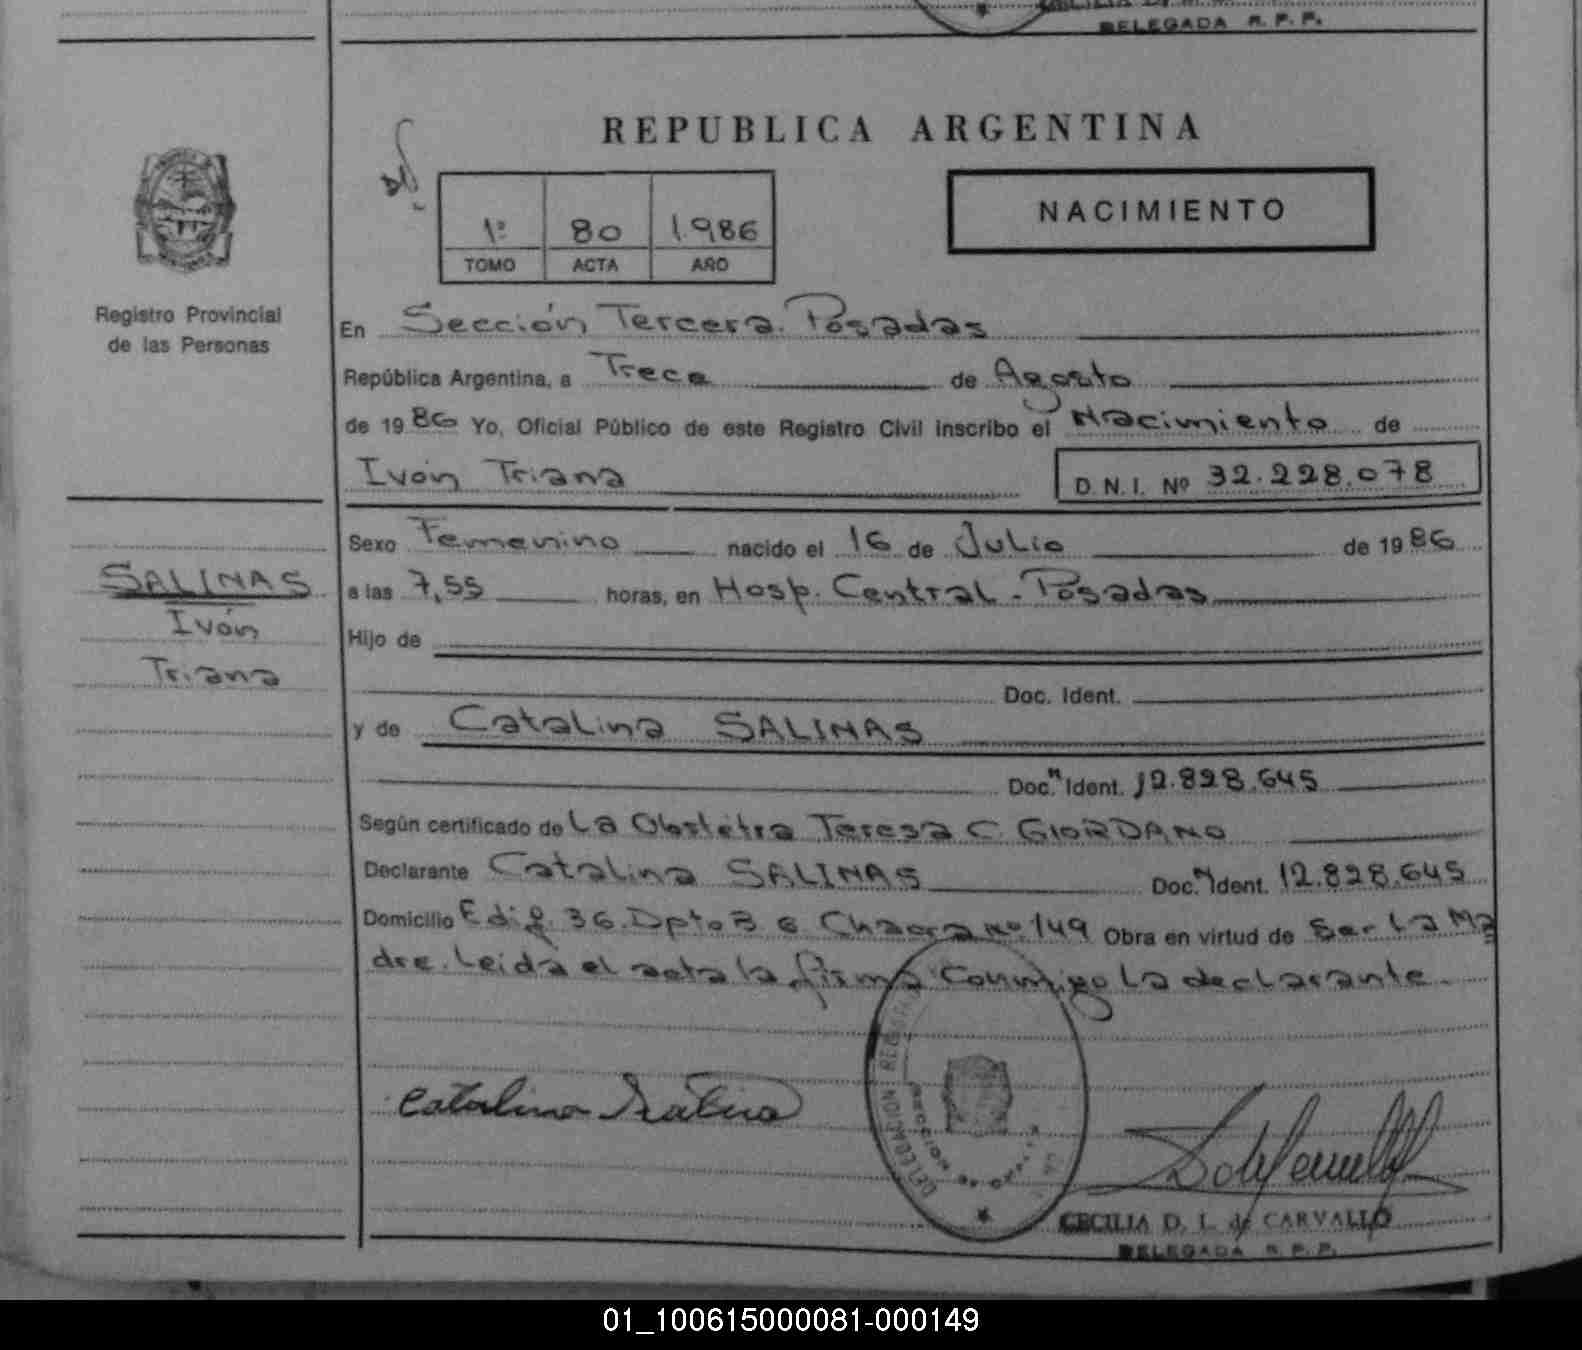 DELEGADA R. P. P.
REPUBLICA ARGENTINA
NACIMIENTO
1º 80 1.986
TOMO ACTA AÑO
Registro Provincial
de las Personas
En Sección Tercera. Posadas
República Argentina, a Trece de Agosto
de 1986 Yo, Oficial Público de este Registro Civil inscribo el Nacimiento de
Ivón Triana
D.N.I. Nº 32.228.078
Sexo Femenino nacido el 16 de Julio de 1986
SALINAS
Ivón
Triana
a las 7,55 horas, en Hosp. Central - Posadas
Hijo de
Doc. Ident.
y de Catalina SALINAS
Doc. Ident. 12.828.645
Según certificado de La Obstétra Teresa C. GIORDANO
Declarante Catalina SALINAS Doc. Ident. 12.828.645
Domicilio Edif. 36. Dpto B 6 Chacra Nº 149 Obra en virtud de Ser La Ma
dre. Leida el acta la firma conmigo La declarante.
Catalina Salina
DELEGACION
CECILIA D. L. de CARVALLO
DELEGADA R. P. P.
01_100615000081-000149